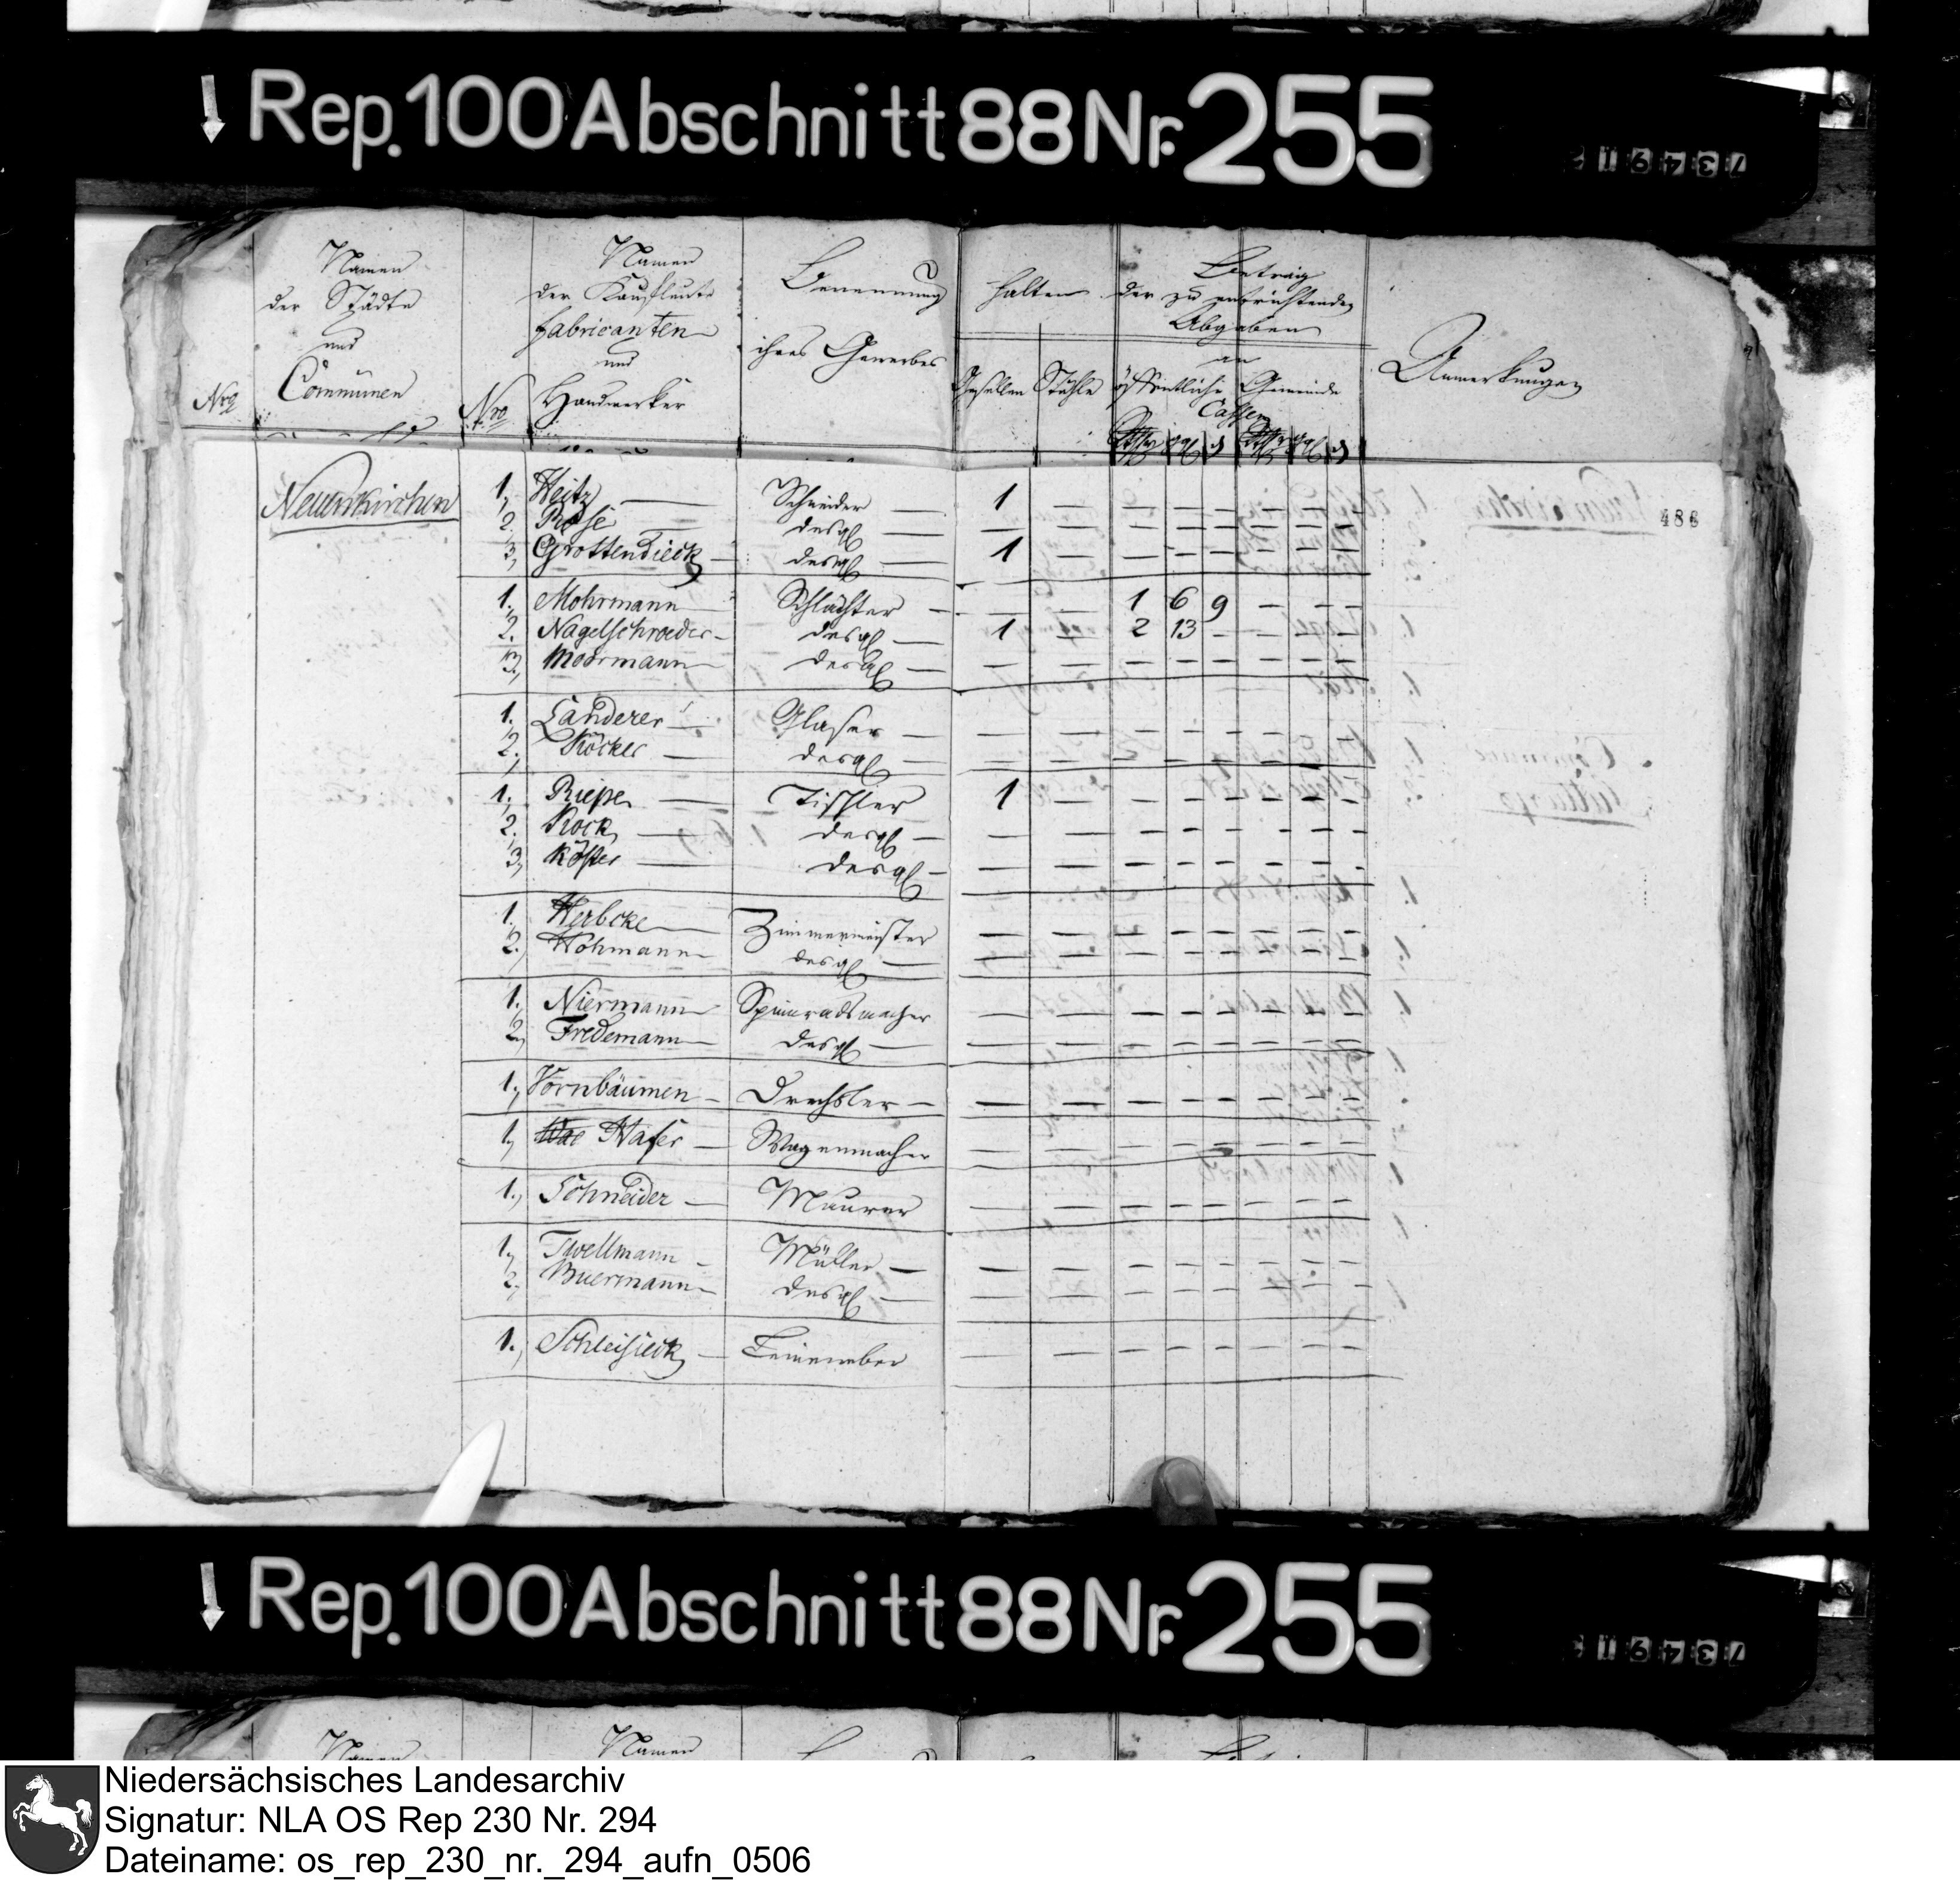 Rep. 100 Abschnitt 88 Nr. 255
734913
Nro
Namen der Städte und Communen
Nro
Namen der Kaufleute fabricanten und Handwerker
Benennung ihres Gewerbes
halten
Gesellen Stühle
Betrag der zu entrichtenden Abgaben
an
öffentliche Gemeinde
Cassen
Anmerkungen
486
Neuenkirchen
1. Heitz — Schneider — 1 — — — — — — —
2. Rose desgl — — — — — — — — —
3. Grottendieck — desgl — 1 — — — — — — —
1. Mohrmann — Schlächter — — — 1 6 9 — — —
2. Nagelschroeder — desgl — 1 — 2 13 — — — —
3. Moormann — desgl — — — — — — — — —
1. Landerer — Glaser — — — — — — — — —
2. Röcker — desgl — — — — — — — — —
1. Riepe — Tischler 1 — — — — — — —
2. Rock — desgl — — — — — — — — —
3. Köster — desgl — — — — — — — — —
1. Herbcke — Zimmermeister — — — — — — — —
2. Hohmann — desgl — — — — — — — — —
1. Niermann — Spinnradsmacher — — — — — — — —
2. Fredemann — desgl — — — — — — — — —
1. Vornbäumen — Drechsler — — — — — — — — —
1. Hafer — Wagenmacher — — — — — — — —
1. Schneider — Maurer — — — — — — — —
1. Twellmann — Müller — — — — — — — — —
2. Buermann — desgl — — — — — — — — —
1. Schleisieck — Leineweber — — — — — — — —
Rep. 100 Abschnitt 88 Nr. 255
734913
Namen
Namen
Niedersächsisches Landesarchiv
Signatur: NLA OS Rep 230 Nr. 294
Dateiname: os_rep_230_nr._294_aufn_0506